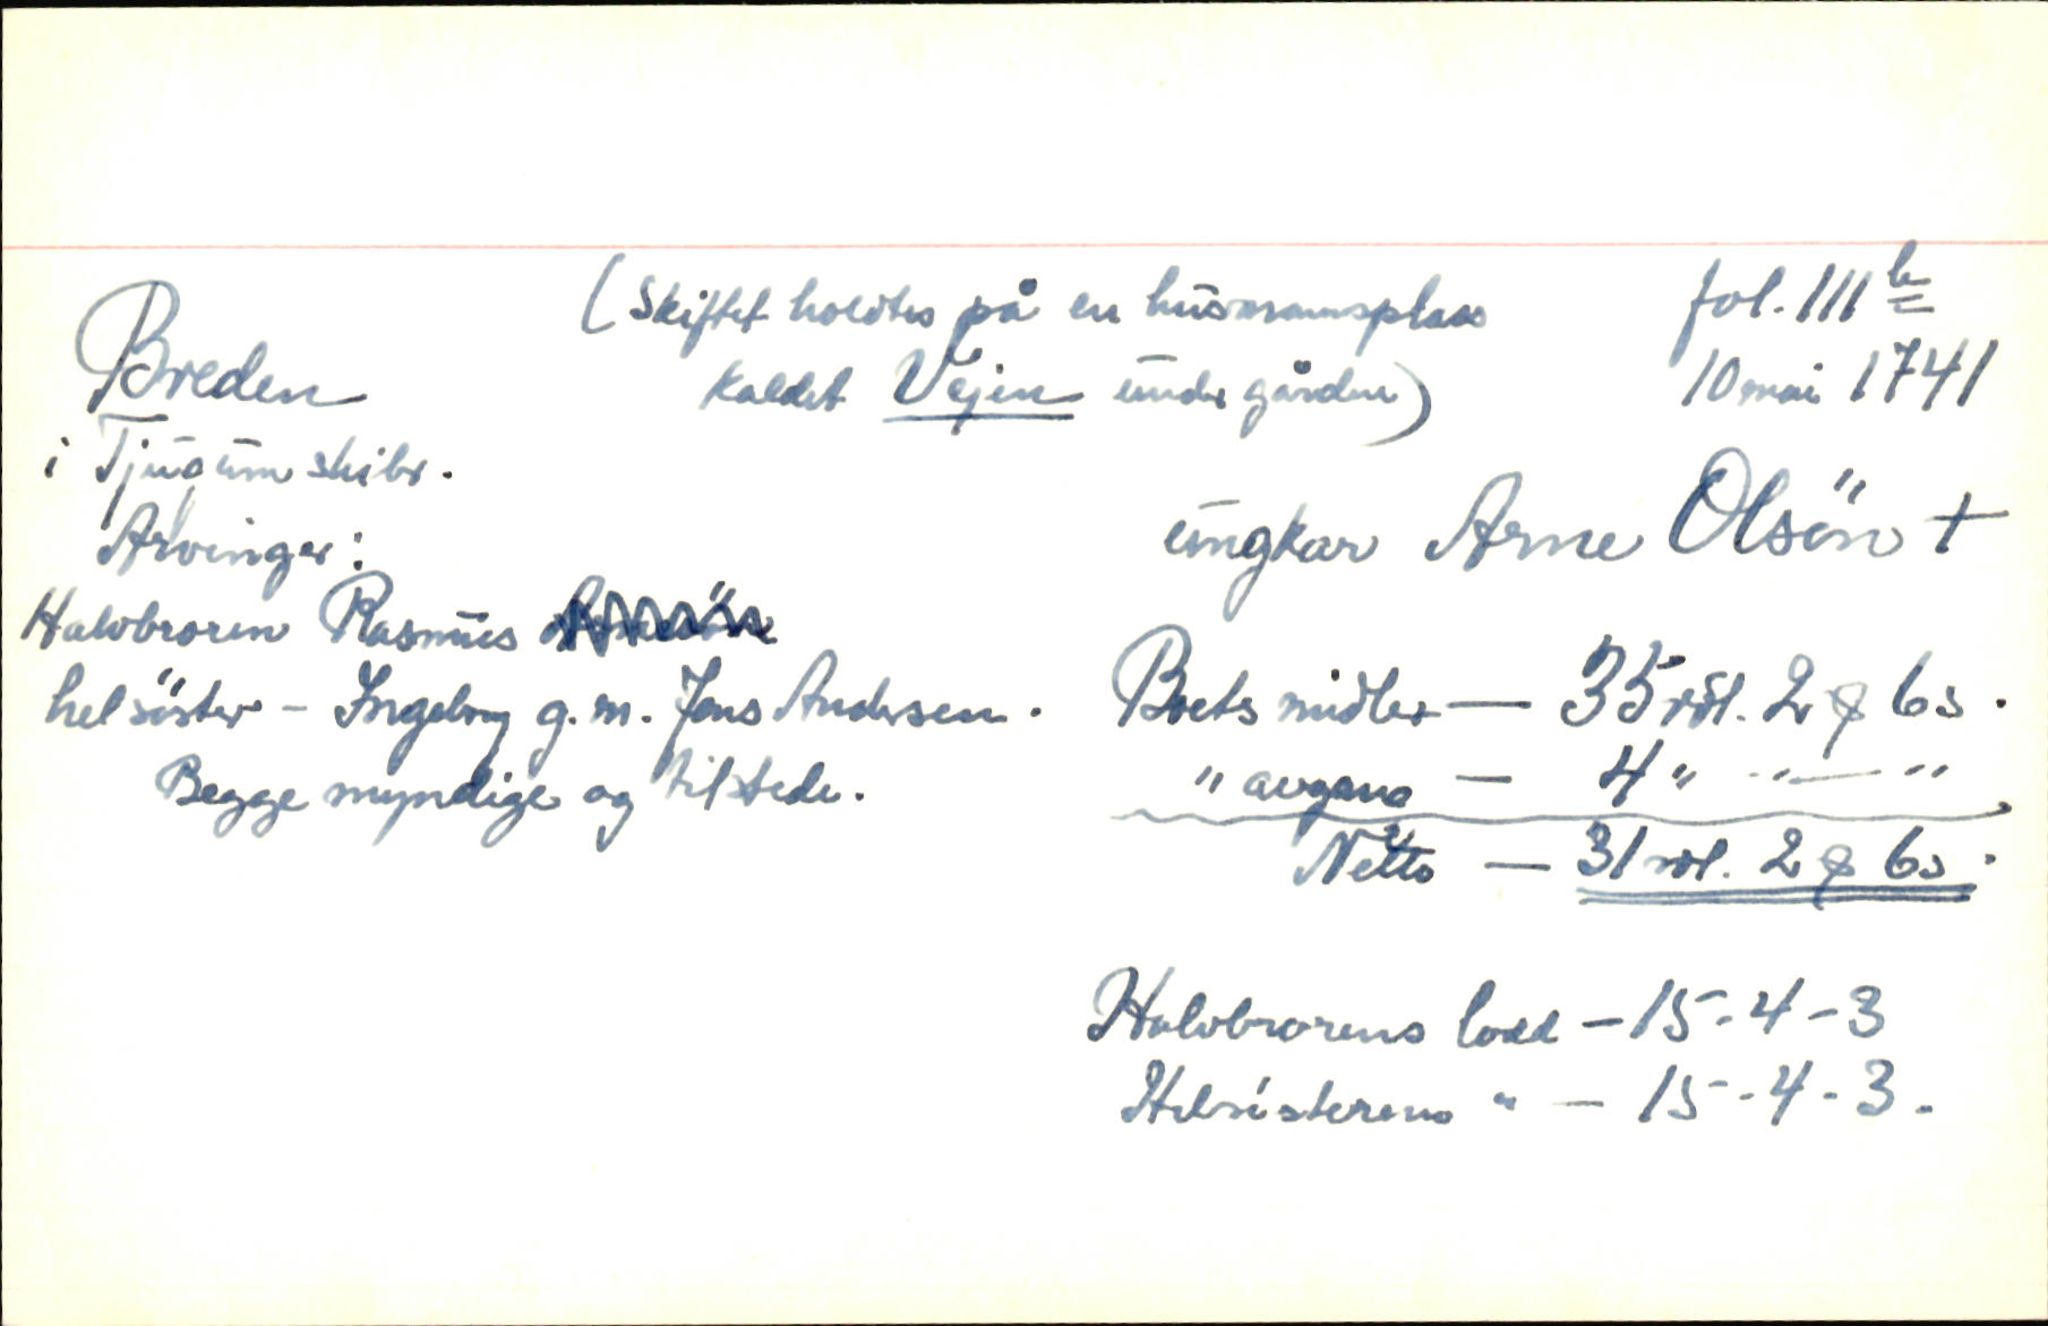 (Skiftet holdtes på en husmannsplass
kaldet Vejen under gården)
fol. 111 b
10 mai 1741
Breden
i Tjugum skibr.
ungkar Arne Olsön +
Arvinger:
Halvbroren Rasmus
helsöster - Ingeborg g.m. Jens Andersen.
Begge myndige og tilstede.
Boets midler — 35 rdl. 2 ꝗ 6 s.
" avgang — 4 " " — "
Netto — 31 rdl. 2 ꝗ 6 s.
Halvbrorens lodd - 15 - 4 - 3
Helsösterens " — 15 - 4 - 3.